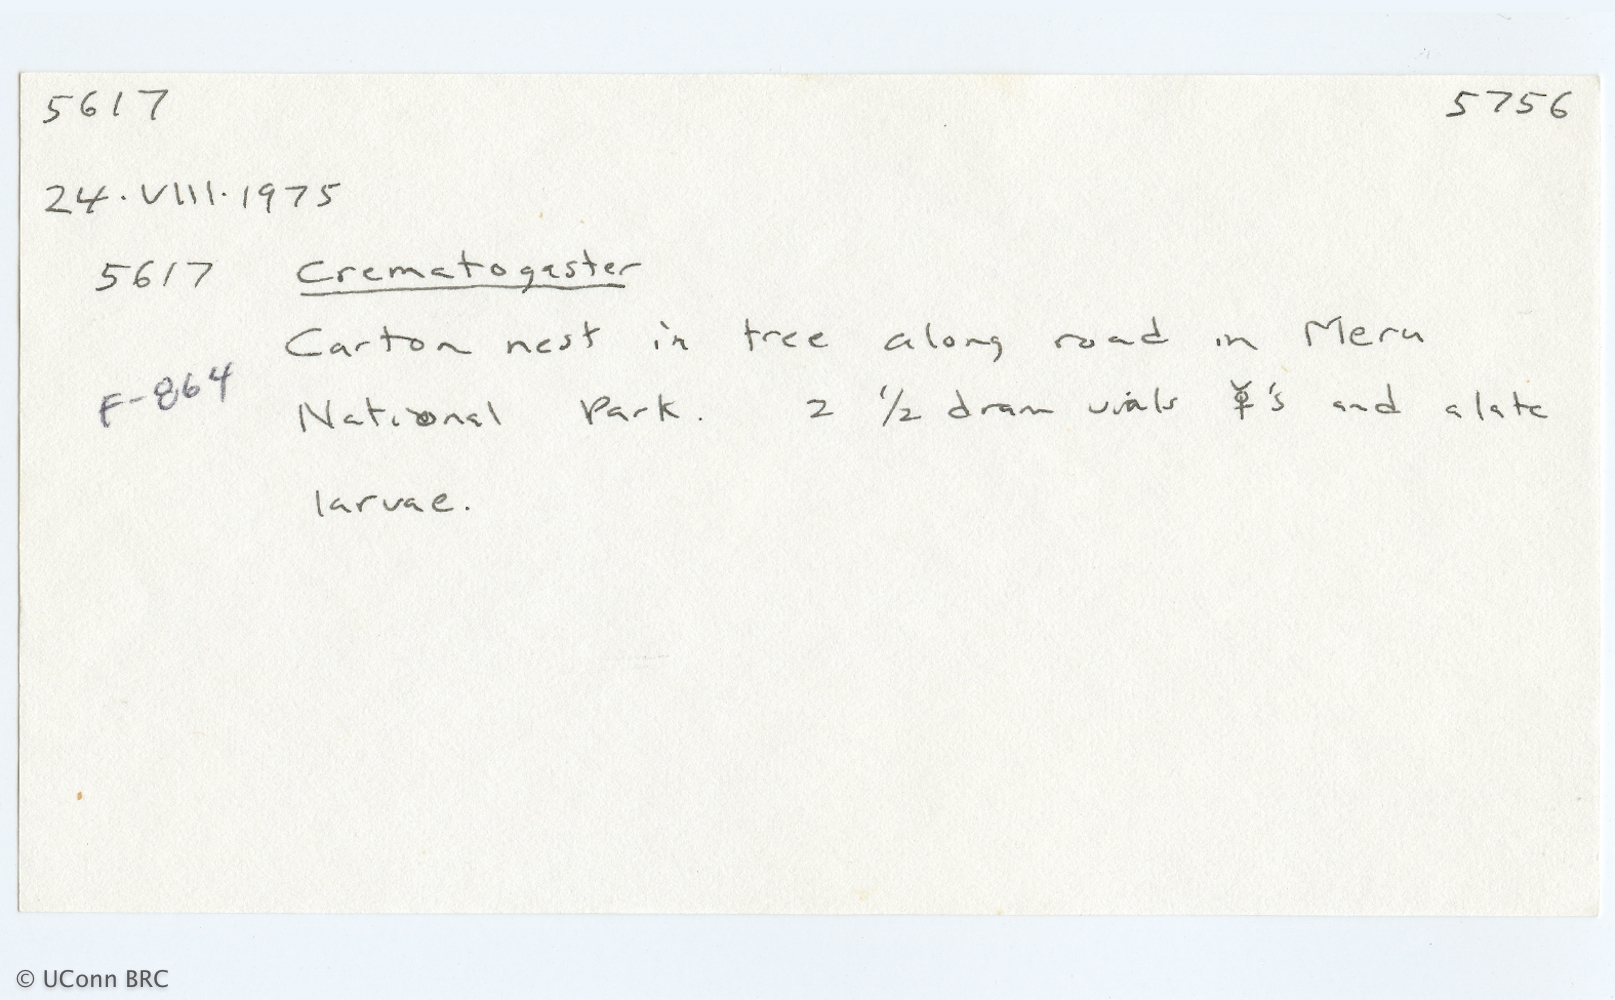 5617 5756
24.VIII.1975
5617 Crematogaster
Carton nest in tree along road in Meru
F-864 National Park. 2 1/2 dram vials ☿'s and alate
larvae.
© UConn BRC